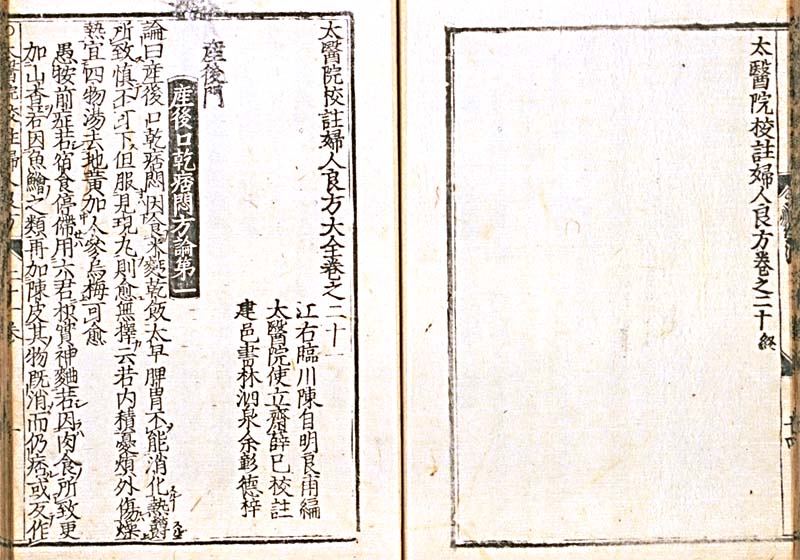 太醫院校註婦人良方卷之二十終
太醫院校註婦人良方大全卷之二十一
江右臨川陳自明良甫編
太醫院使立齋薛已校註
建邑書林泗泉余彰德梓
產後門
產後口乾痞悶方論第一
論曰產後口乾痞悶因食麪乾飯太早脾胃不能消化熱鬱
所致慎不可下但服見現丸則愈無擇云若內積憂煩外傷燥
熱宜四物湯去地黃加人參烏梅可愈
愚按前症若宿食停滯用六君枳實神麯若因肉食所致更
加山查若因魚鱠之類再加陳皮其物既消而仍痞或反作
醫院校註婦人良方 二十一卷